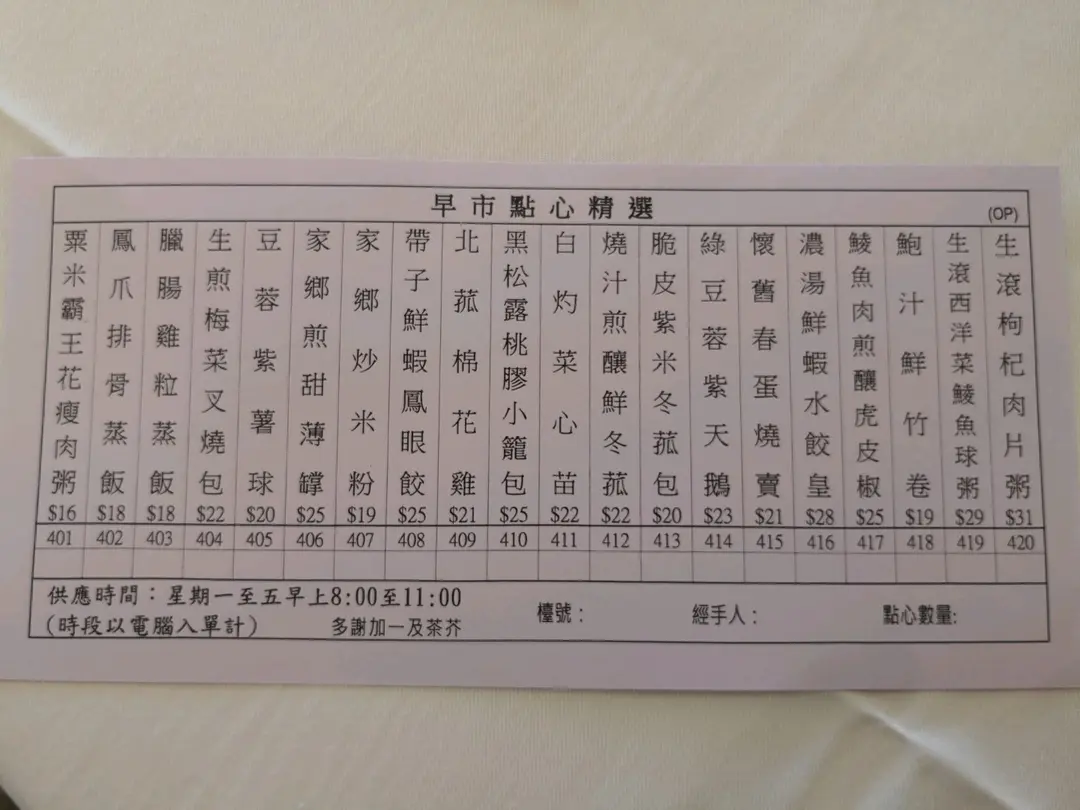 早市點心精選
(OP)
粟米霸王花瘦肉粥 $16 401
鳳爪排骨蒸飯 $18 402
臘腸雞粒蒸飯 $18 403
生煎梅菜叉燒包 $22 404
豆蓉紫薯球 $20 405
家鄉煎甜薄罉 $25 406
家鄉炒米粉 $19 407
帶子鮮蝦鳳眼餃 $25 408
北菰棉花雞 $21 409
黑松露桃膠小籠包 $25 410
白灼菜心苗 $22 411
燒汁煎釀鮮冬菰 $22 412
脆皮紫米冬菰包 $20 413
綠豆蓉紫天鵝 $23 414
懷舊春蛋燒賣 $21 415
濃湯鮮蝦水餃皇 $28 416
鯪魚肉煎釀虎皮椒 $25 417
鮑汁鮮竹卷 $19 418
生滾西洋菜鯪魚球粥 $29 419
生滾枸杞肉片粥 $31 420
供應時間：星期一至五早上8:00至11:00
(時段以電腦入單計)
多謝加一及茶芥
檯號：
經手人：
點心數量: